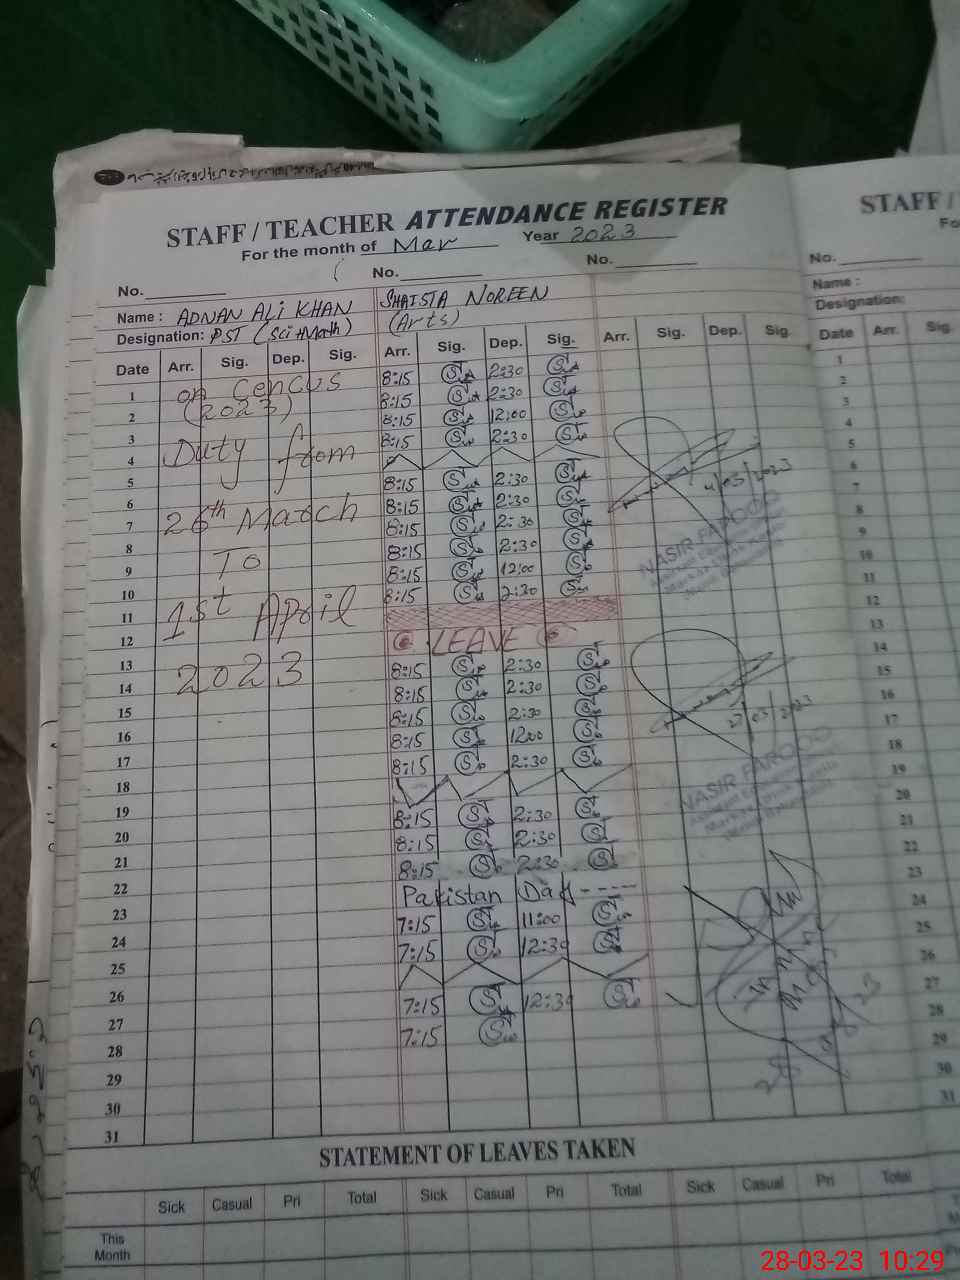 STAFF / TEACHER ATTENDANCE REGISTER
For the month of Mar Year 2023
No. No. No.
Name : ADNAN ALI KHAN SHAISTA NOREEN
Designation: PST (Sci+Math) (Arts)
Date Arr. Sig. Dep. Sig. Arr. Sig. Dep. Sig. Arr. Sig. Dep. Sig.
1 on Cencus 8:15 2:30
2 (2023) 8:15 2:30
3 8:15 12:00
4 Duty from 8:15 2:30
5
6 8:15 2:30
7 26th March 8:15 2:30
8 8:15 2:30
9 To 8:15 2:30
10 8:15 12:00
11 1st April 8:15 2:30
12
13 LEAVE
14 2023 8:15 2:30
15 8:15 2:30
16 8:15 2:30
17 8:15 12:00
18 8:15 2:30
19
20 8:15 2:30
21 8:15 2:30
22 8:15 2:30
23 Pakistan Day - - - -
24 7:15 11:00
25 7:15 12:30
26
27 7:15 12:30
28 7:15
29
30
31
NASIR FAROOQ
NASIR FAROOQ
STATEMENT OF LEAVES TAKEN
Sick Casual Pri Total Sick Casual Pri Total Sick Casual Pri Total
This
Month
STAFF /
No.
Name :
Designation:
Date Arr. Sig.
1
2
3
4
5
6
7
8
9
10
11
12
13
14
15
16
17
18
19
20
21
22
23
24
25
26
27
28
29
30
31
28-03-23 10:29